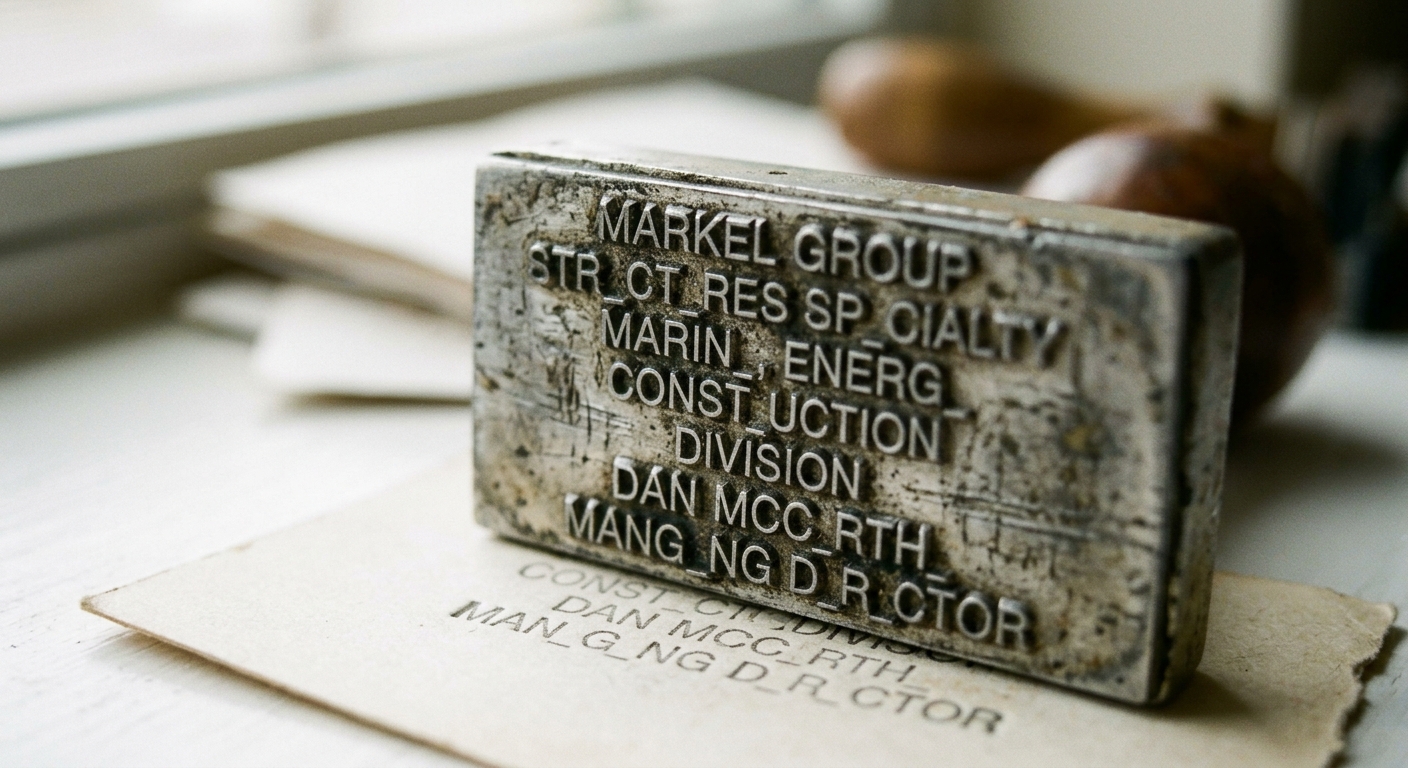 MARKEL GROUP
STR_CT_RES SP_CIALTY
MARIN_, ENERG_
CONST_UCTION
DIVISION
DAN MCC_RTH_
MANG_NG D_R_CTOR
DAN MCC_RTH_
MAN_G_NG D_R_CTOR